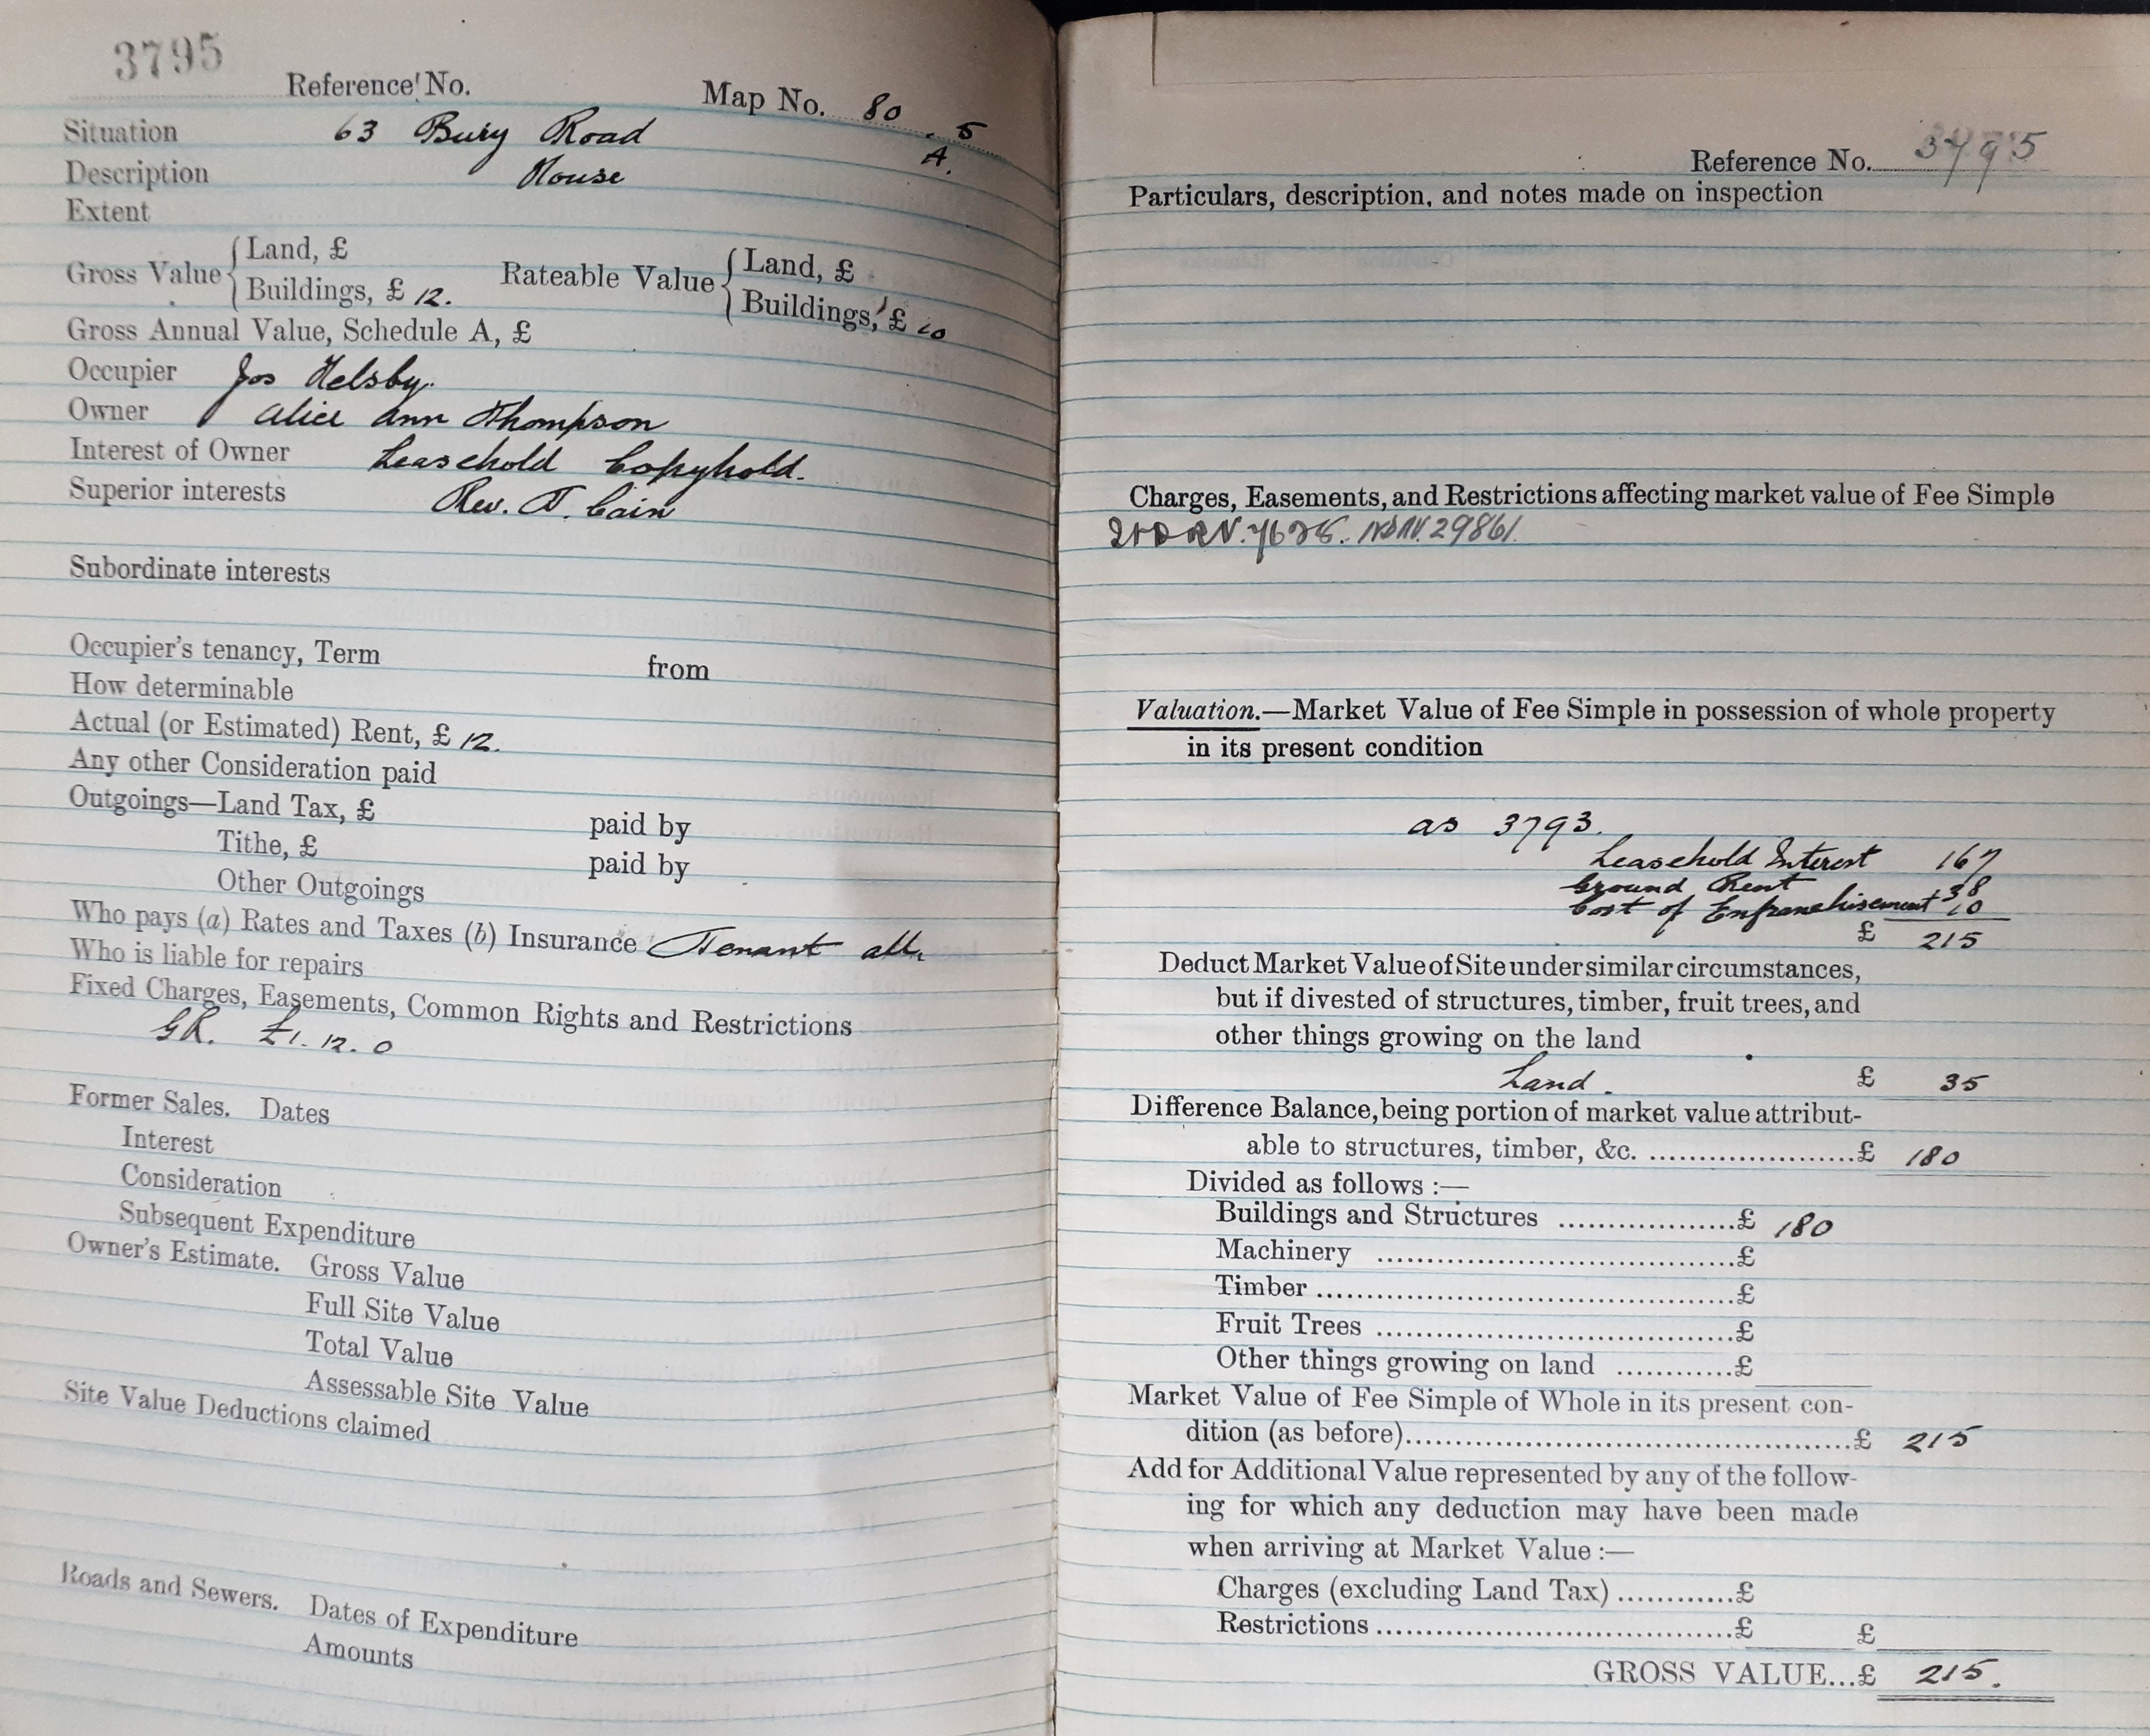 3795
Reference No. Map No. 80. 5
A.
Situation 63 Bury Road
Description House
Extent
Gross Value { Land, £
Buildings, £ 12. Rateable Value { Land, £
Buildings, £ 10
Gross Annual Value, Schedule A, £
Occupier Jos Helsby.
Owner Alice Ann Thompson
Interest of Owner Leasehold Copyhold.
Superior interests Rev. T. Cain
Subordinate interests
Occupier's tenancy, Term from
How determinable
Actual (or Estimated) Rent, £ 12.
Any other Consideration paid
Outgoings—Land Tax, £ paid by
Tithe, £ paid by
Other Outgoings
Who pays (a) Rates and Taxes (b) Insurance Tenant all
Who is liable for repairs
Fixed Charges, Easements, Common Rights and Restrictions
GR. £1. 12. 0
Former Sales. Dates
Interest
Consideration
Subsequent Expenditure
Owner's Estimate. Gross Value
Full Site Value
Total Value
Assessable Site Value
Site Value Deductions claimed
Roads and Sewers. Dates of Expenditure
Amounts
Reference No. 3795
Particulars, description, and notes made on inspection
Charges, Easements, and Restrictions affecting market value of Fee Simple
29861.
Valuation.—Market Value of Fee Simple in possession of whole property
in its present condition
as 3793.
Leasehold Interest 167
Ground Rent 38
Cost of Enfranchisement 10
£ 215
Deduct Market Value of Site under similar circumstances,
but if divested of structures, timber, fruit trees, and
other things growing on the land
Land. £ 35
Difference Balance, being portion of market value attribut-
able to structures, timber, &c. ......................£ 180
Divided as follows :—
Buildings and Structures ...................£ 180
Machinery ......................................£
Timber .............................................£
Fruit Trees ......................................£
Other things growing on land ............£
Market Value of Fee Simple of Whole in its present con-
dition (as before)................................................£ 215
Add for Additional Value represented by any of the follow-
ing for which any deduction may have been made
when arriving at Market Value :—
Charges (excluding Land Tax) ............£
Restrictions ......................................£ £
GROSS VALUE...£ 215.